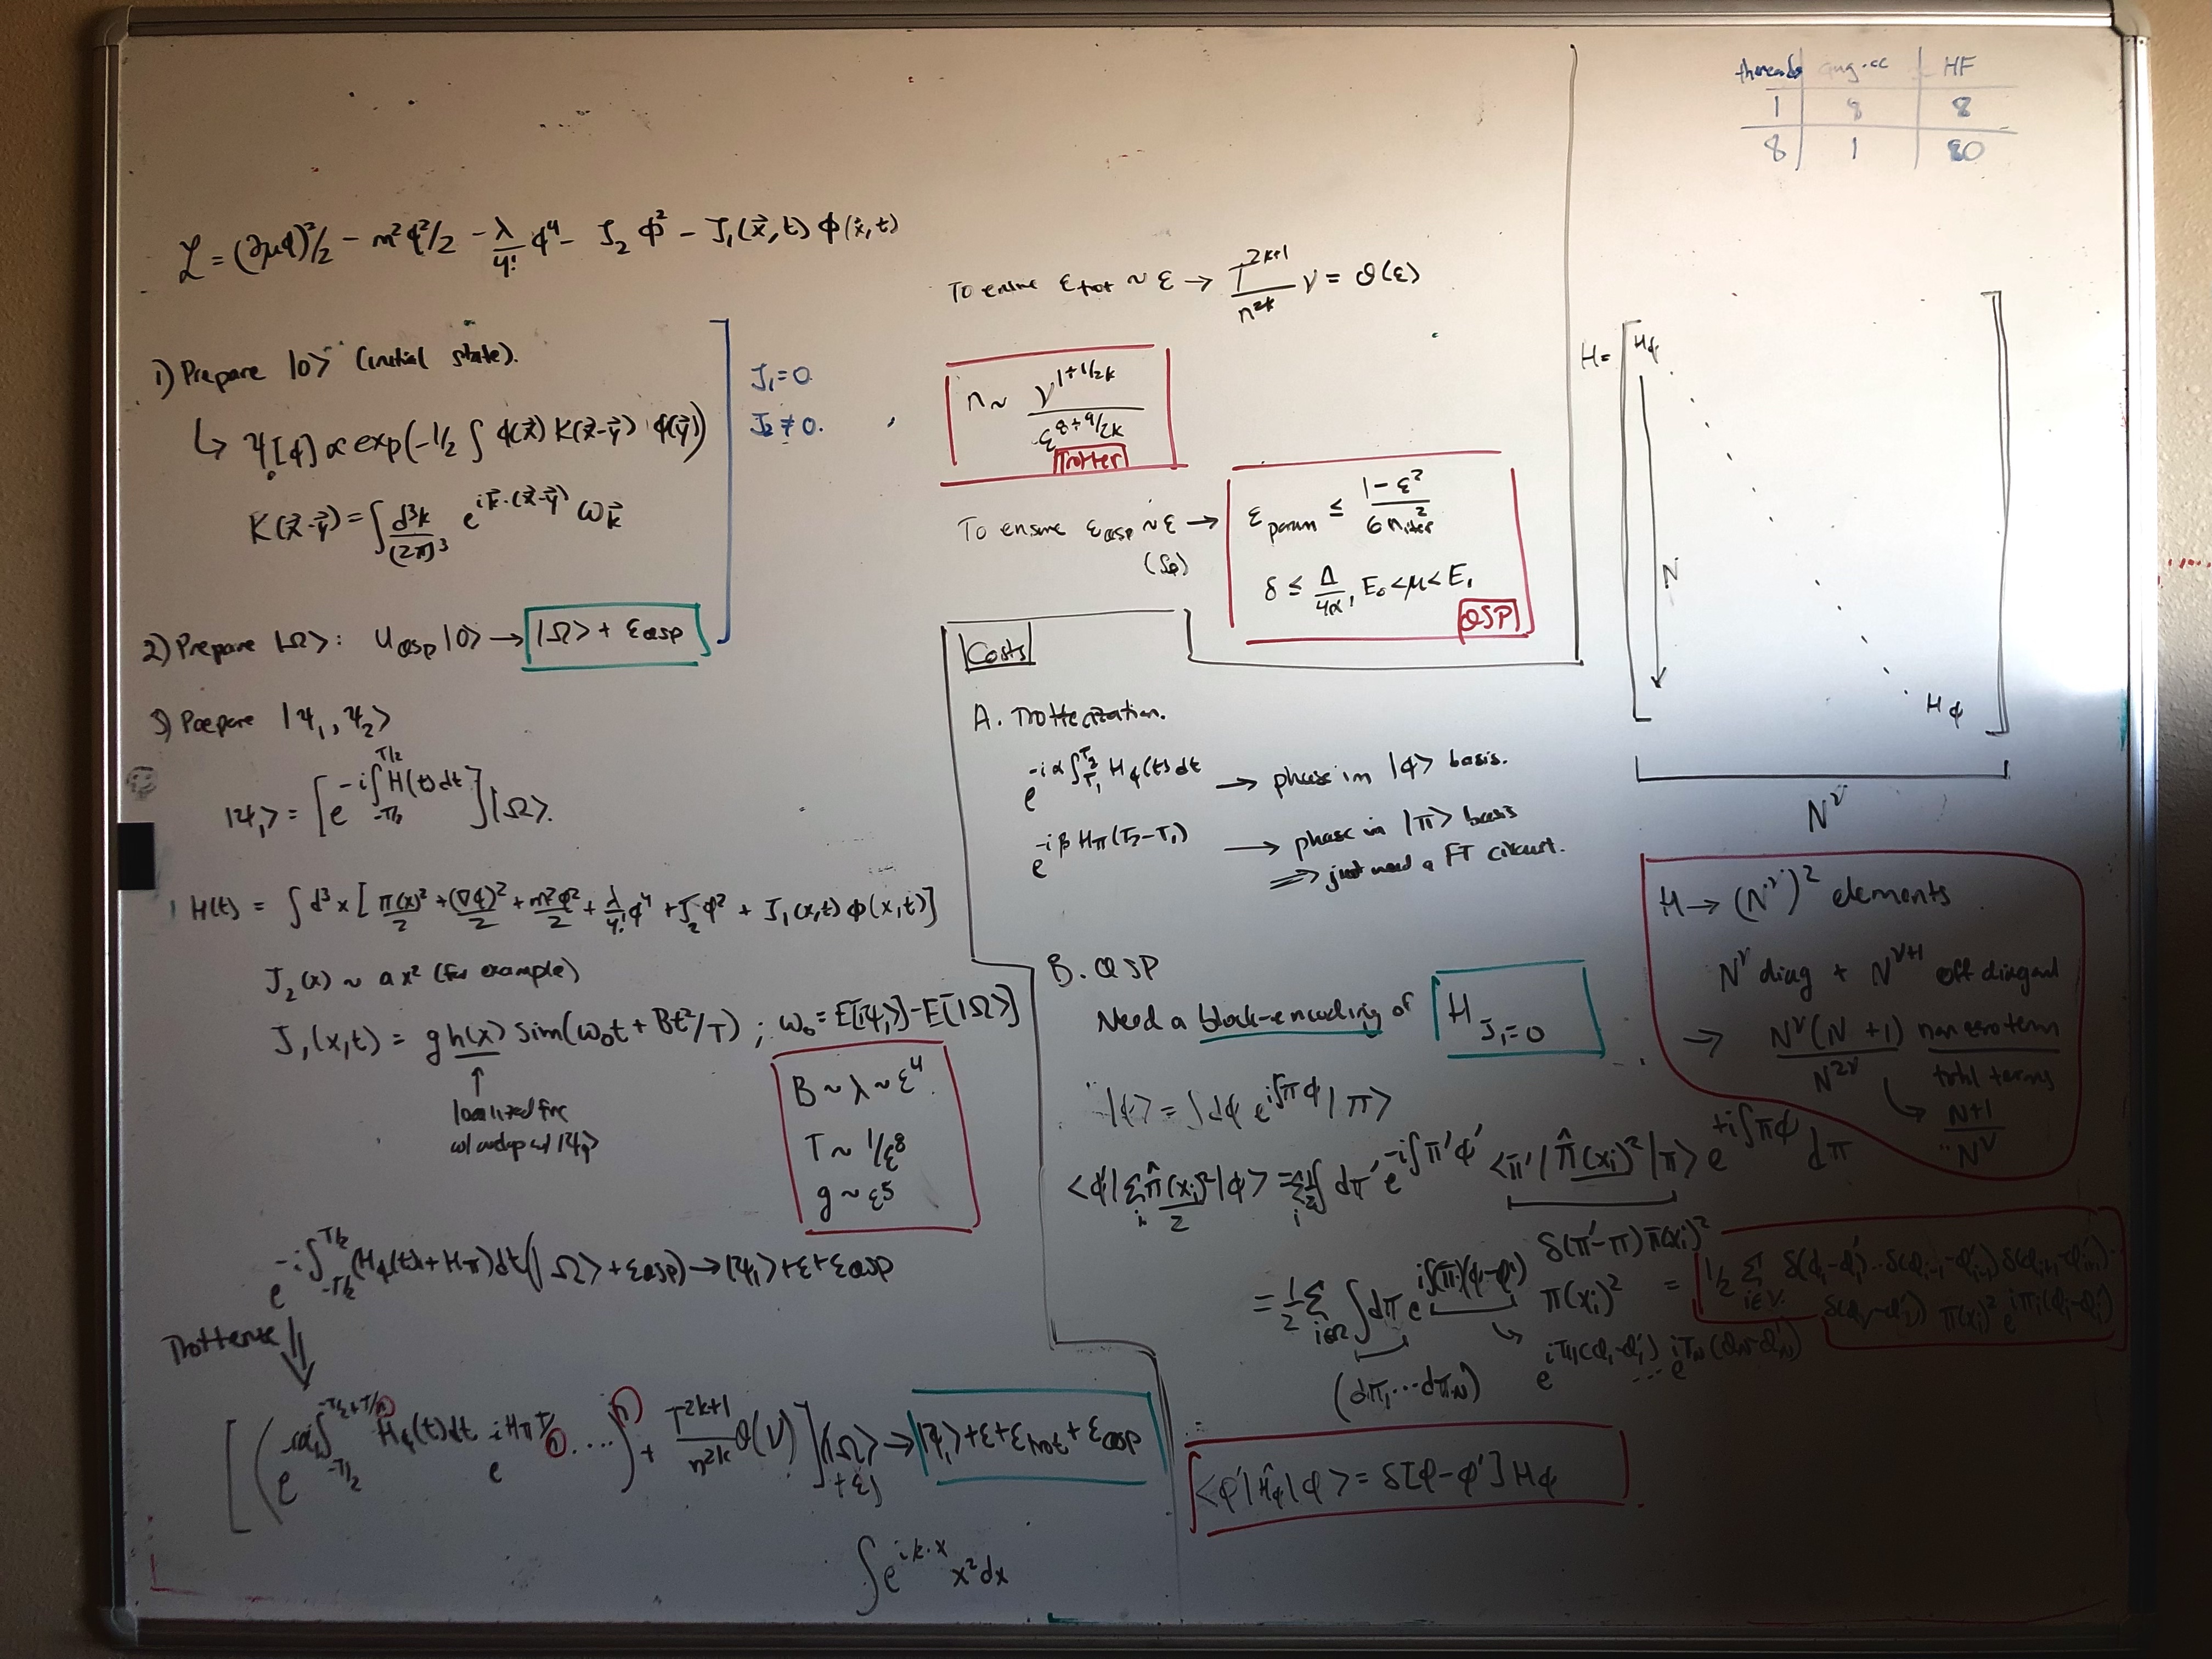 ℒ = (∂μφ)²/2 − m²φ²/2 − λ/4! φ⁴ − J₂ φ² − J₁(x⃗,t) φ(x,t)
1) Prepare |0> (initial state).
↳ Ψ₀[φ] ∝ exp(−1/2 ∫ φ(x⃗) K(x⃗−y⃗) φ(y⃗))
K(x⃗−y⃗) = ∫ d³k/(2π)³ e^{ik⃗·(x⃗−y⃗)} ω_k⃗
J₁=0
J₂≠0.
2) Prepare |Ω>: U_QSP|0> → |Ω> + ε_QSP
3) Prepare |Ψ₁, Ψ₂>
|Ψ₁> = [e^{−i∫_{−T/2}^{T/2} H(t)dt}]|Ω>.
H(t) = ∫ d³x [π(x)²/2 + (∇φ)²/2 + m²φ²/2 + λ/4! φ⁴ + J₂φ² + J₁(x,t) φ(x,t)]
J₂(x) ~ ax² (for example)
J₁(x,t) = g h(x) sin(ω₀t + Bt²/T) ; ω₀ = E[|Ψ₁>] − E[|Ω>]
↑
localized fnc
w/ overlap w/ |Ψ₁>
B ~ λ ~ ε⁴
T ~ 1/ε⁸
g ~ ε⁵
e^{−i∫_{−T/2}^{T/2} (H_φ(t)+H_π)dt}(|Ω> + ε_QSP) → |Ψ₁> + ε + ε_QSP
Trotterize ⇓
[(e^{−iα₁∫_{−T/2}^{−T/2+T/n} H_φ(t)dt} e^{−iH_π T/n} ....)^n + T^{2k+1}/n^{2k} O(V)](|Ω> + ε) → |Ψ₁> + ε + ε_trot + ε_QSP
∫ e^{ik·x} x² dx
To ensure ε_trot ~ ε → T^{2k+1}/n^{2k} V = O(ε)
n ~ V^{1+1/2k}/ε^{8+9/2k}
Trotter
To ensure ε_QSP ~ ε →
ε_param ≤ (1−ε²)/(6n²_iter)
δ ≤ Δ/4α, E₀<μ<E₁
QSP
Costs
A. Trotterization.
e^{−iα∫_{T₁}^{T₂} H_φ(t)dt} → phase in |φ> basis.
e^{−iβH_π(T₂−T₁)} → phase in |π> basis
⇒ just need a FT circuit.
B. QSP
Need a block-encoding of H_{J₁=0}
|φ> = ∫dφ e^{i∫πφ}|π>
<φ'|Σ_i π̂(x_i)²/2|φ> = Σ_i 1/2 ∫dπ' e^{−i∫π'φ'} <π'|π̂(x_i)²|π> e^{+i∫πφ} dπ
δ(π'−π)π(x_i)²
= 1/2 Σ_{i∈Ω} ∫dπ e^{i∫(π)(φ−φ')} π(x_i)² = 1/2 Σ_{i∈V} δ(φ₁−φ₁')...δ(φ_{i−1}−φ'_{i−1}) δ(φ_{i+1}−φ'_{i+1})...
δ(φ_V−φ'_V) π(x_i)² e^{iπ_i(φ_i−φ_i')}
(dπ₁...dπ_N)
↳ e^{iπ₁(φ₁−φ₁')} ... e^{iπ_N(φ_N−φ'_N)}
<φ'|Ĥ_φ|φ> = δ[φ−φ']H_φ
threads HF
1 8 8
8 1 80
H= [ H_φ
N
H_φ ]
N^V
H → (N^V)² elements
N^V diag + N^{V+1} off diagonal
→ N^V(N+1)/N^{2V} nonzero term/total terms
↳ N+1/N^V